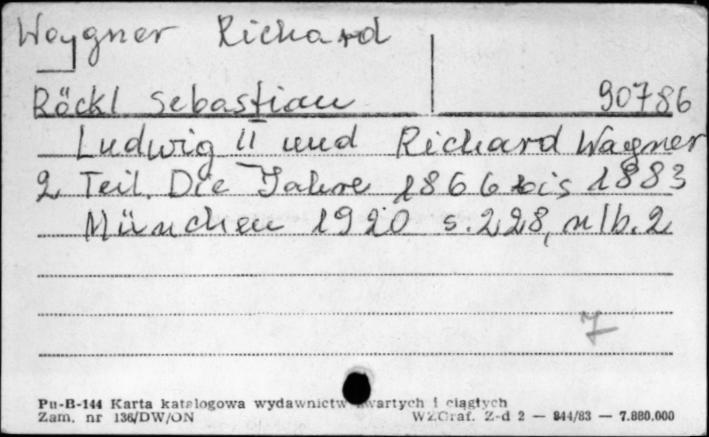 Wagner Richard
Röckl Sebastian 90786
Ludwig II und Richard Wagner
2 Teil. Die Jahre 1866 bis 1883
München 1920 s. 228, nlb. 2
7
Pu-B-144 Karta katalogowa wydawnictw zwartych i ciągłych
Zam. nr 136/DW/ON WZGraf. Z-d 2 — 944/83 — 7.880.000